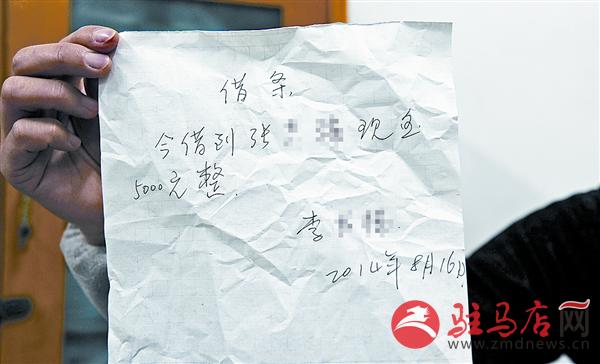 借条
今借到张 现金
5000元整.
李
2014年8月16日
驻马店网
www.zmdnews.cn